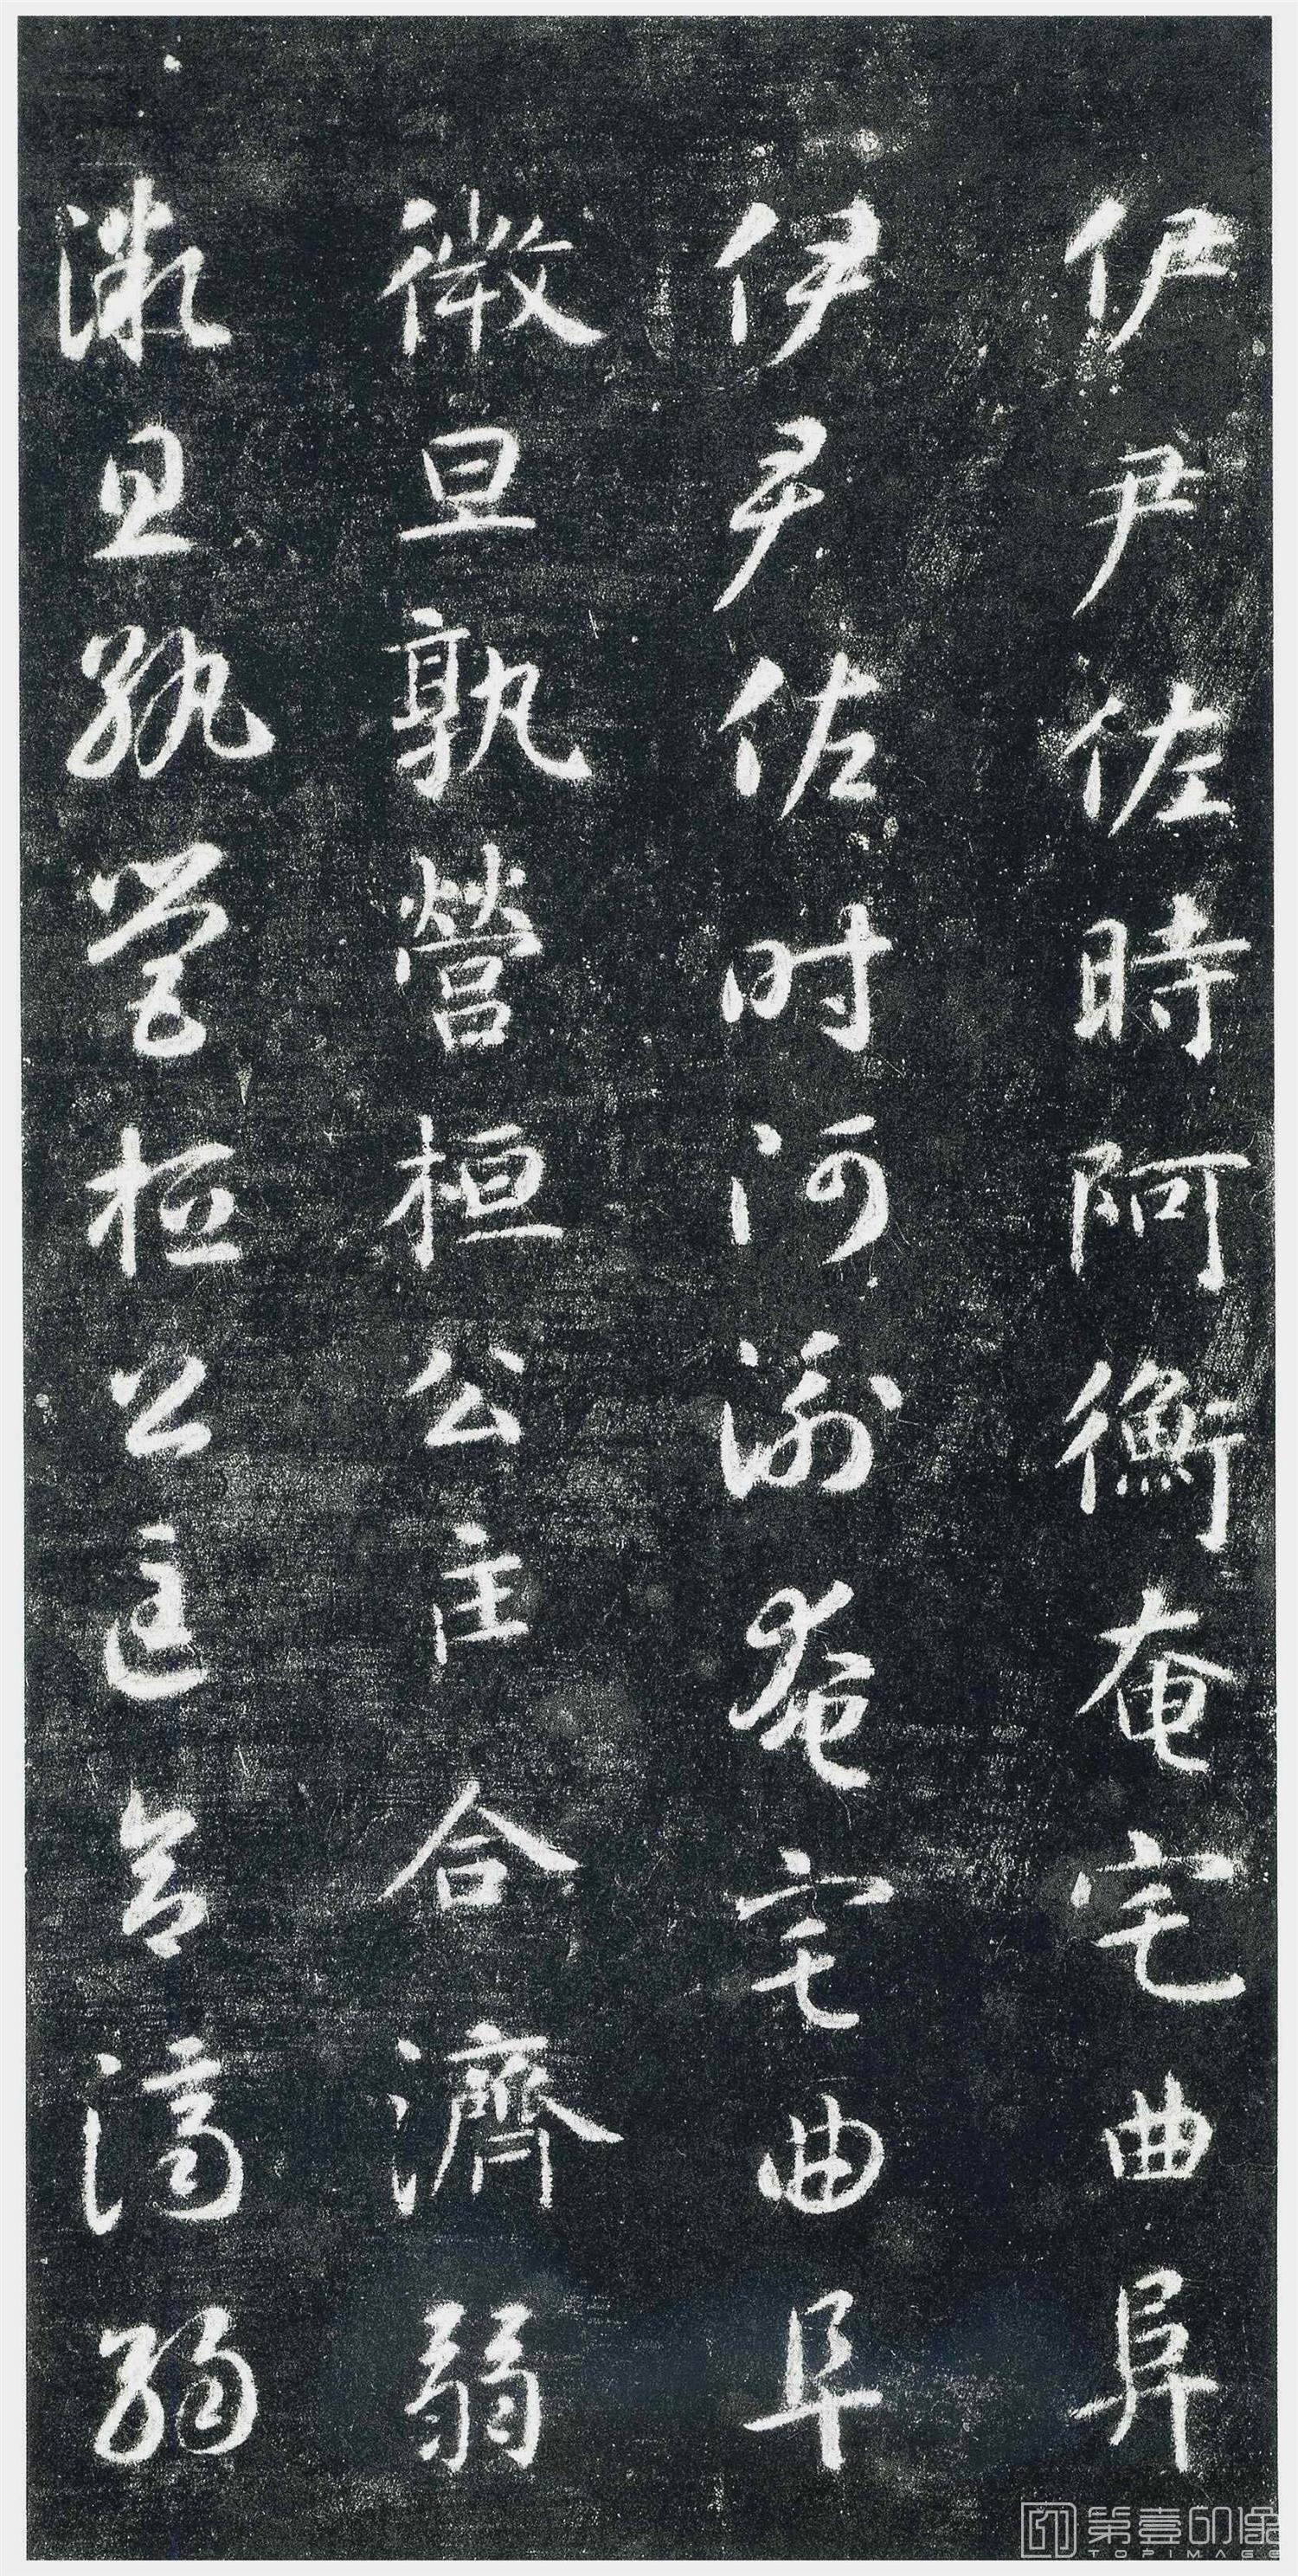 伊尹佐時阿衡奄宅曲阜
伊尹佐时阿衡奄宅曲阜
微旦孰營桓公匡合濟弱
微旦孰營桓公匡合濟弱
第壹印像
TOPIMAGE